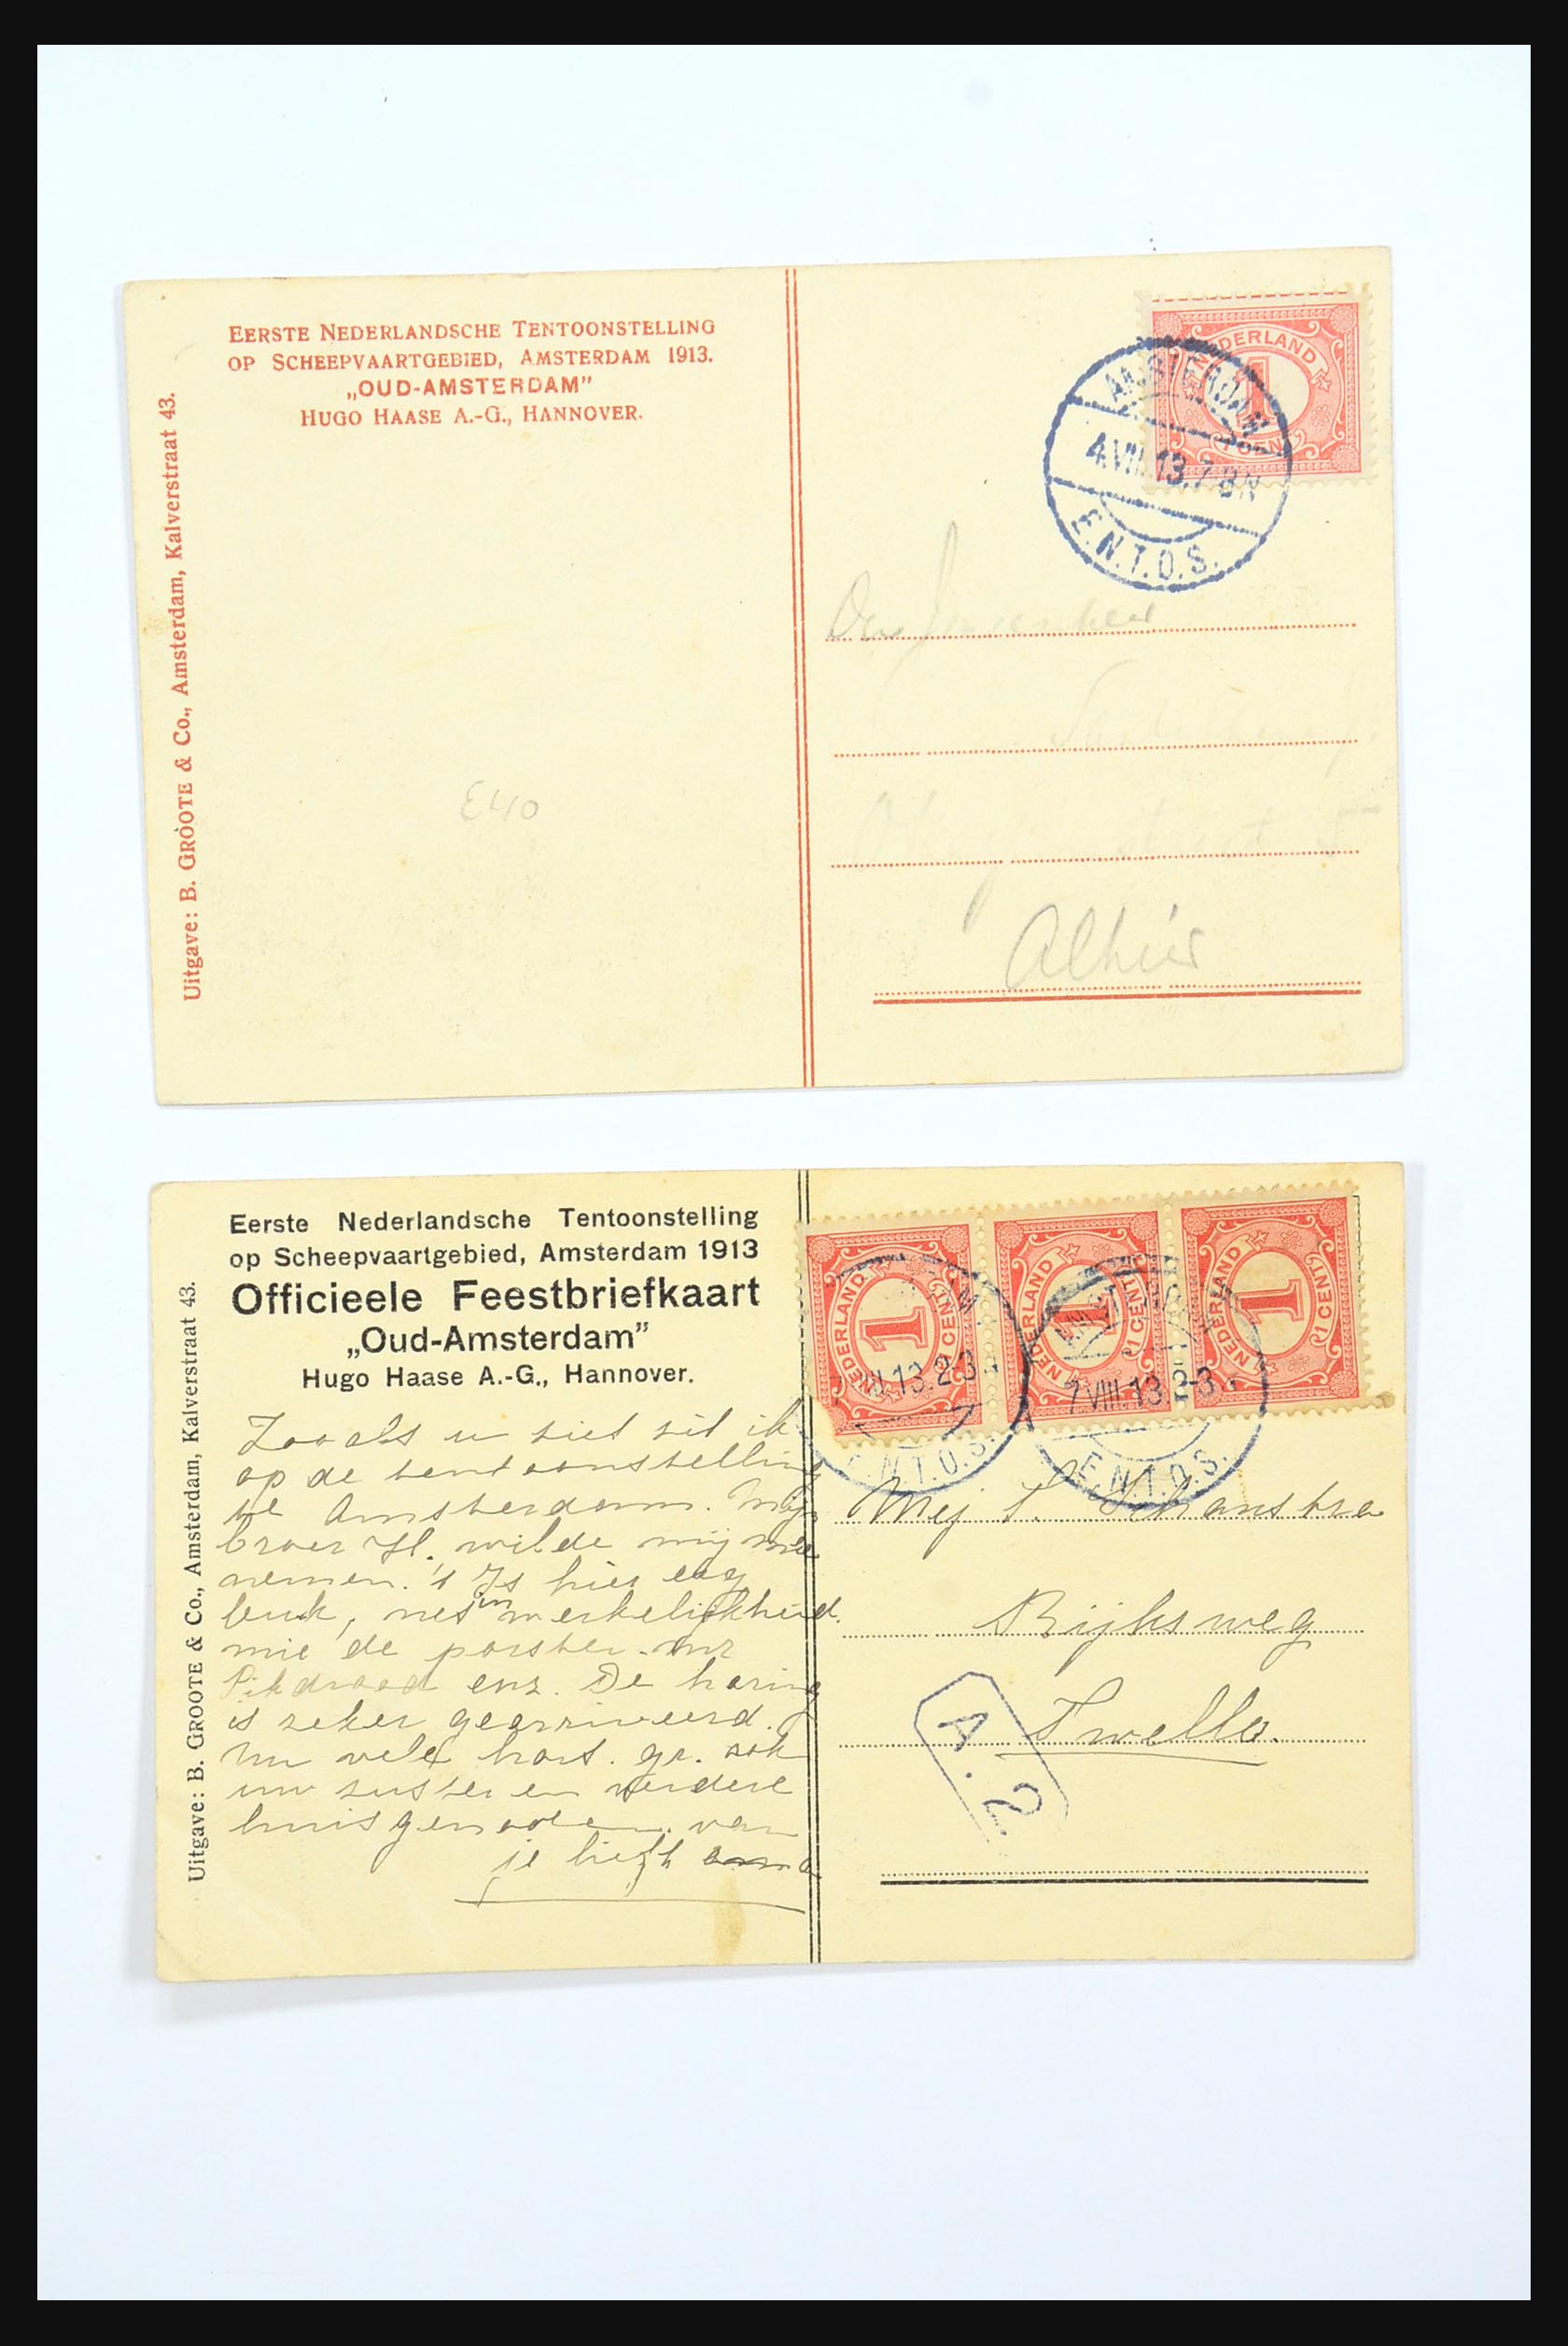 EERSTE NEDERLANDSCHE TENTOONSTELLING
OP SCHEEPVAARTGEBIED, AMSTERDAM 1913.
„OUD-AMSTERDAM”
HUGO HAASE A.-G., HANNOVER.
Uitgave: B. GROOTE & Co., Amsterdam, Kalverstraat 43.
NEDERLAND
1
CENT
AMSTERDAM
4.VIII.13.7-8N
E.N.T.O.S.
Den
straat 5
Alhier
E40
Eerste Nederlandsche Tentoonstelling
op Scheepvaartgebied, Amsterdam 1913
Officieele Feestbriefkaart
„Oud-Amsterdam”
Hugo Haase A.-G., Hannover.
Uitgave: B. GROOTE & Co., Amsterdam, Kalverstraat 43.
Zooals u ziet zit ik
op de tentoonstelling
te Amsterdam. Mijn
broer H. wilde mij mee
nemen. 't Is hier erg
leuk, net in werkelijkheid.
mie de
enz. De haring
is zeker gearriveerd.
Nu vele hart. gr. ook
uw zuster en verdere
huisgenooten van
je liefh
NEDERLAND
1
1 CENT
NEDERLAND
1
1 CENT
NEDERLAND
1
1 CENT
VIII.13.2-3
E.N.T.O.S.
7 VIII.13 2-3
E.N.T.O.S.
Mej T. Schanstra
Rijksweg
Twello.
A.2